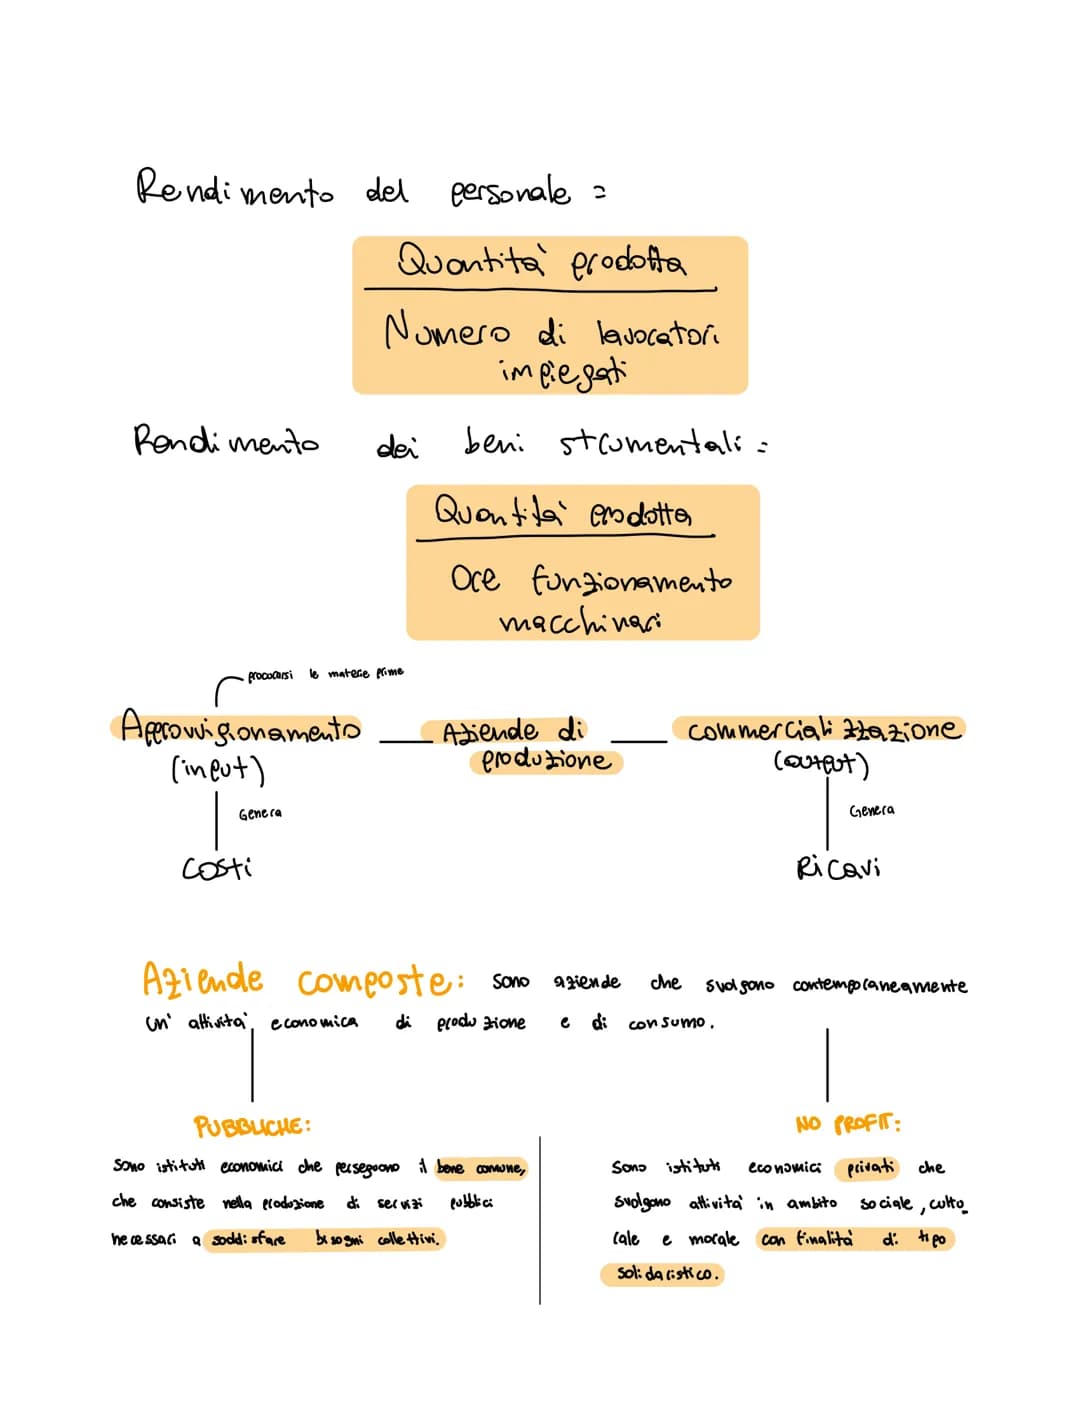 Rendimento del personale =
Quantità prodotta
Numero di lavoratori
impiegati
Rendimento dei beni strumentali =
Quantità prodotta
Ore funzionamento
macchinari
procurarsi le materie prime
Approvvigionamento
(input)
Aziende di
produzione
commercializzazione
(output)
Genera
Costi
Genera
Ricavi
Aziende composte: sono aziende che svolgono contemporaneamente
un' attività economica di produzione e di consumo.
PUBBLICHE:
Sono istituti economici che perseguono il bene comune,
che consiste nella produzione di servizi pubblici
necessari a soddisfare bisogni collettivi.
NO PROFIT:
Sono istituti economici privati che
svolgono attività in ambito sociale, cultu_
rale e morale con finalità di tipo
solidaristico.